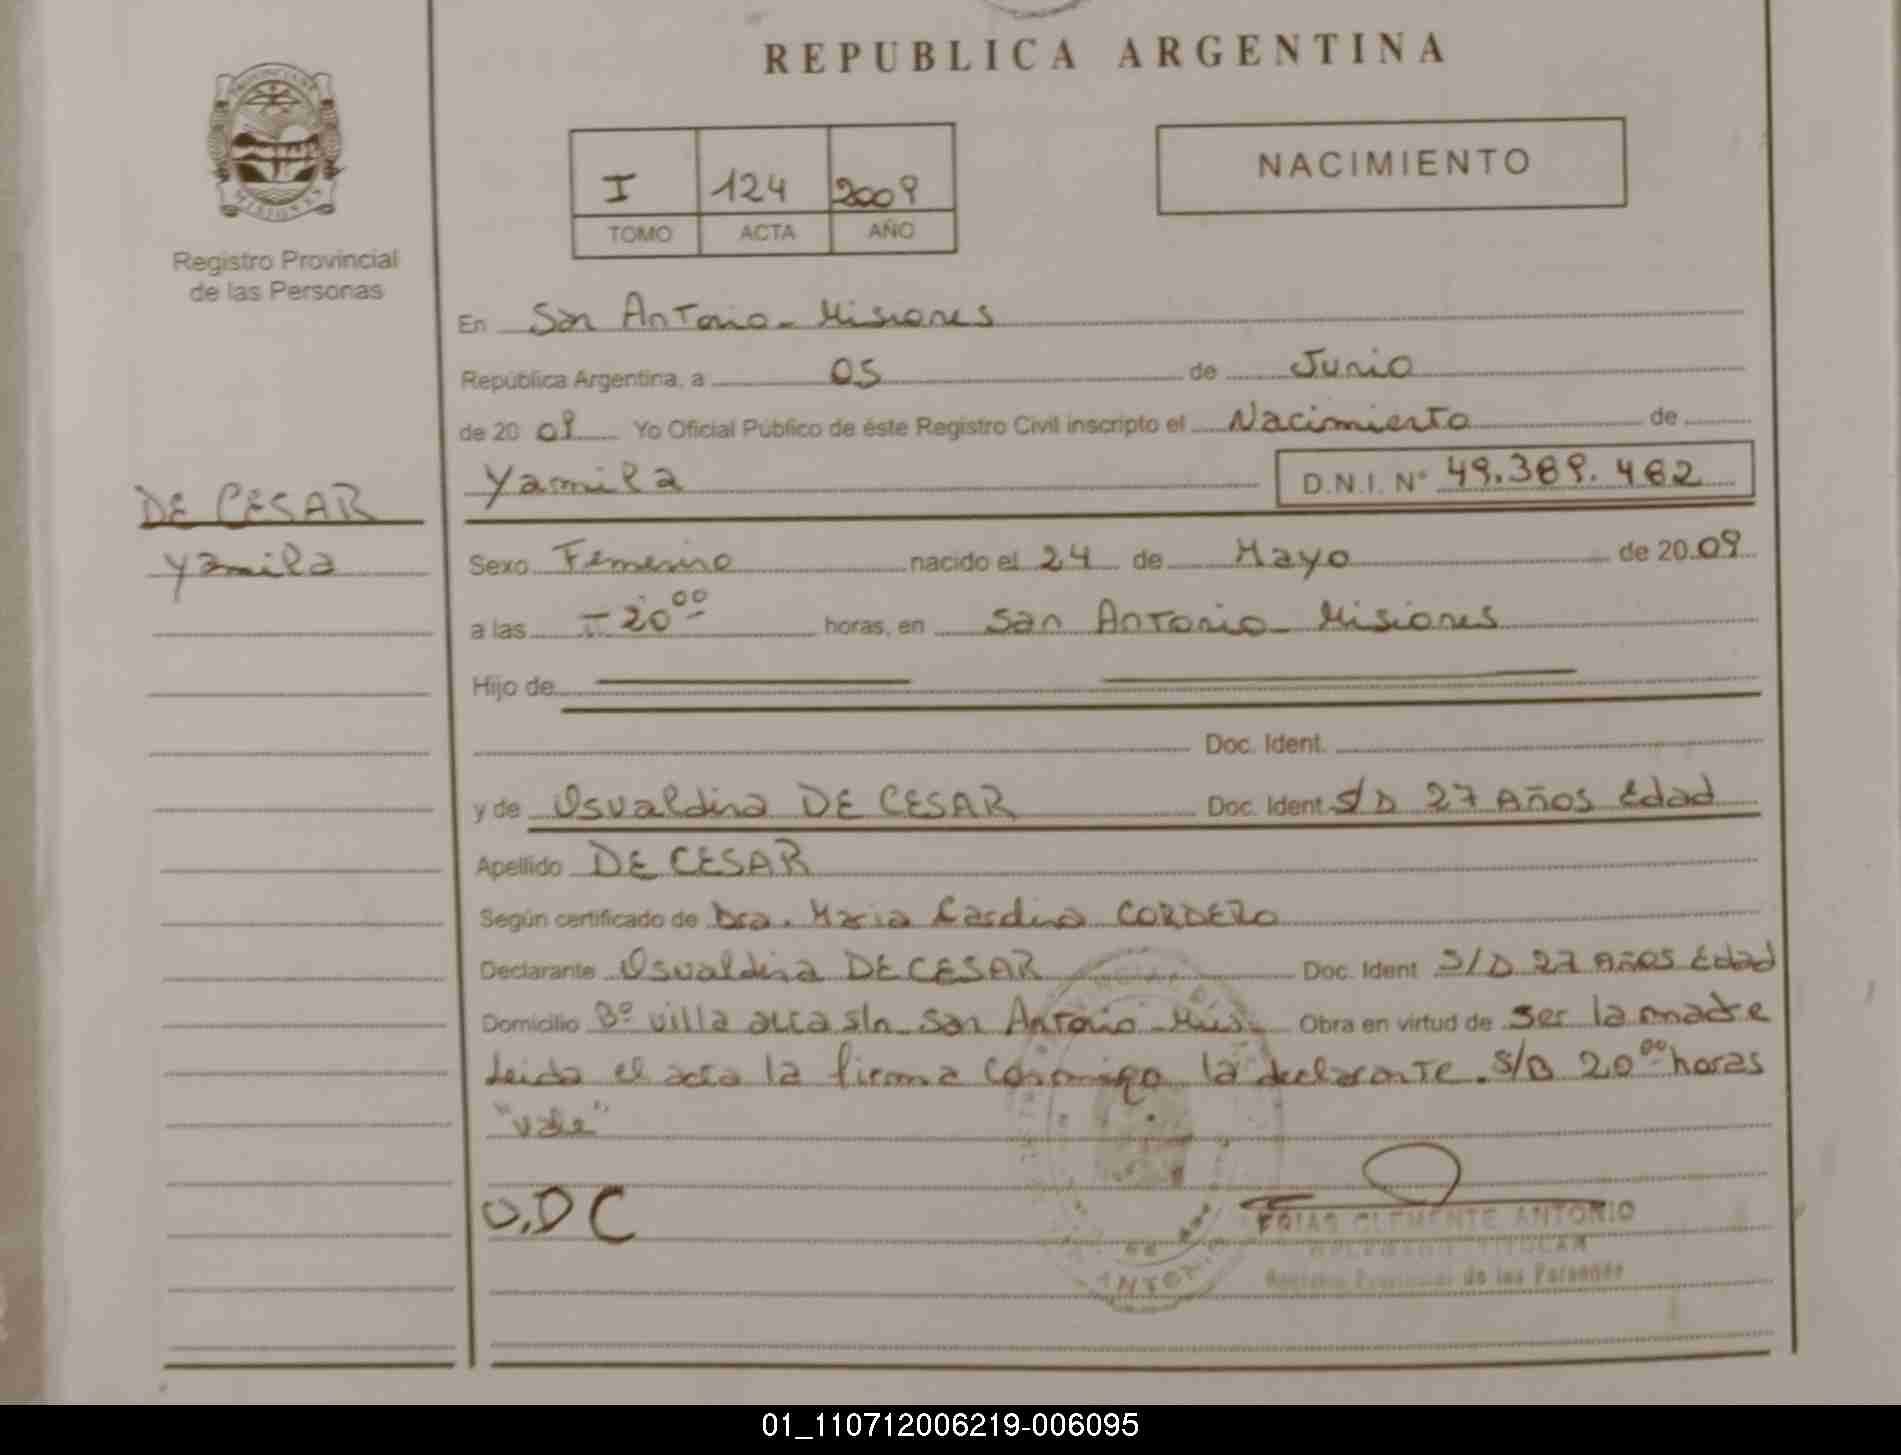 REPUBLICA ARGENTINA
PROVINCIA DE
MISIONES
Registro Provincial
de las Personas
I 124 2009
TOMO ACTA AÑO
NACIMIENTO
En San Antonio - Misiones
República Argentina, a 05 de Junio
de 20 09 Yo Oficial Público de éste Registro Civil inscripto el Nacimiento de
Yamila D.N.I. N° 49.389.482
DE CESAR
Yamila
Sexo Femenino nacido el 24 de Mayo de 20 09
a las 20⁰⁰ horas, en San Antonio - Misiones
Hijo de
Doc. Ident.
y de Osvaldina DE CESAR Doc. Ident. S/D 27 Años Edad
Apellido DE CESAR
Según certificado de Dra. Maria CORDERO
Declarante Osvaldina DE CESAR Doc. Ident S/D 27 Años Edad
Domicilio Bº villa s/n San Antonio - Mis. Obra en virtud de ser la madre
Leida el acta la firma conmigo la declarante. S/B 20⁰⁰ horas
"vale"
O.DC
FRIAS CLEMENTE ANTONIO
TITULAR
Registro Provincial de las Personas
ANTONIO
01_110712006219-006095